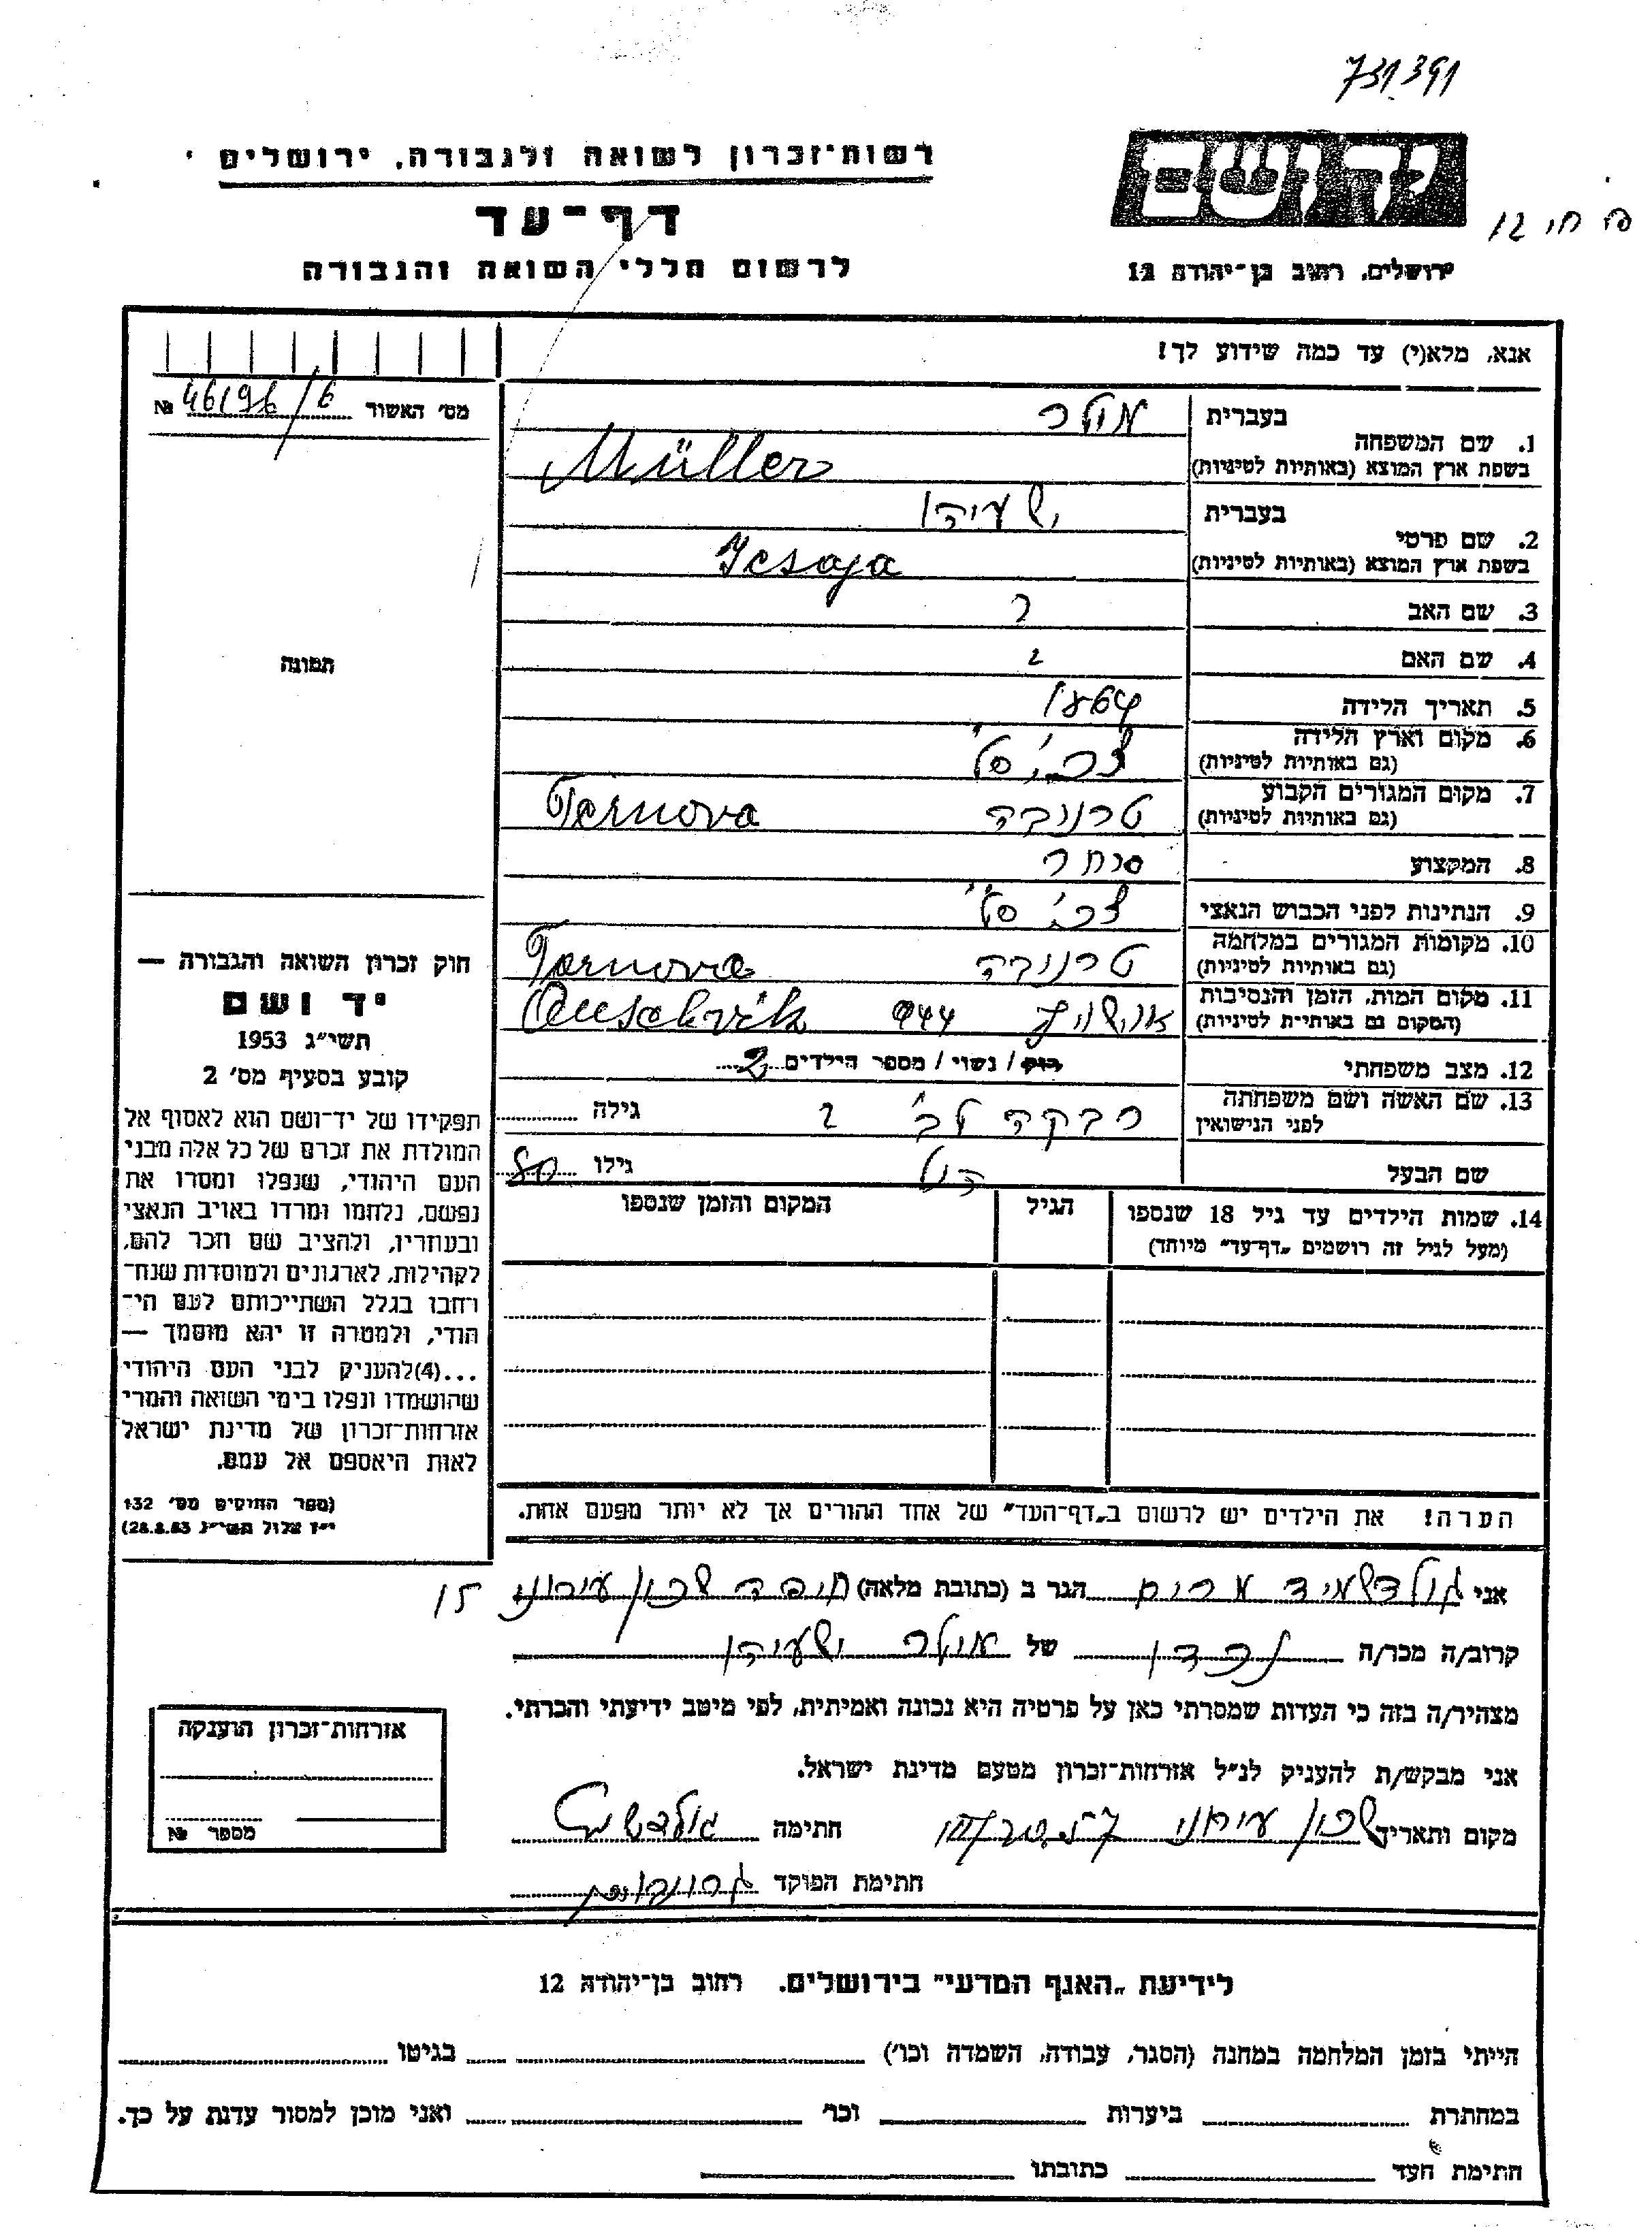 731391
רשות־זכרון לשואה ולגבורה, ירושלים
יד ושם
דף־עד
לרשום חללי השואה והגבורה
ירושלים, רחוב בן־יהודה 12
אנא, מלא(י) עד כמה שידוע לך!
מס׳ האשור № 46196/6
1. שם המשפחה בעברית מולר
בשפת ארץ המוצא (באותיות לטיניות) Müller
2. שם פרטי בעברית ישעיהו
בשפת ארץ המוצא (באותיות לטיניות) Jesaja
3. שם האב ?
4. שם האם ?
תמונה
5. תאריך הלידה 1864
6. מקום וארץ הלידה
(גם באותיות לטיניות)
7. מקום המגורים הקבוע טרנובה Ternova
(גם באותיות לטיניות)
8. המקצוע סוחר
9. הנתינות לפני הכבוש הנאצי
10. מקומות המגורים במלחמה טרנובה Ternova
(גם באותיות לטיניות)
11. מקום המות, הזמן והנסיבות אושויץ 944 Auschvik
(המקום גם באותיות לטיניות)
12. מצב משפחתי רוק / נשוי / מספר הילדים 2
13. שם האשה ושם משפחתה רבקה לב ? גילה
לפני הנישואין
שם הבעל הנ״ל גילו 80
14. שמות הילדים עד גיל 18 שנספו הגיל המקום והזמן שנספו
(מעל לגיל זה רושמים „דף־עד״ מיוחד)
הערה! את הילדים יש לרשום ב„דף־העד״ של אחד ההורים אך לא יותר מפעם אחת.
חוק זכרון השואה והגבורה —
יד ושם
תשי״ג 1953
קובע בסעיף מס׳ 2
תפקידו של יד־ושם הוא לאסוף אל
המולדת את זכרם של כל אלה מבני
העם היהודי, שנפלו ומסרו את
נפשם, נלחמו ומרדו באויב הנאצי
ובעוזריו, ולהציב שם וזכר להם,
לקהילות, לארגונים ולמוסדות שנח־
רחבו בגלל השתייכותם לעם הי־
הודי, ולמטרה זו יהא מוסמך —
...(4)להעניק לבני העם היהודי
שהושמדו ונפלו בימי השואה והמרי
אזרחות־זכרון של מדינת ישראל
לאות היאספם אל עמם.
(ספר החוקים מס׳ 132
י״ז אלול תשי״ג 28.8.53)
אני גולדשמיד מרים הגר ב (כתובת מלאה) חיפה שכון עירוני 15
קרוב/ה מכר/ה נכדו של מולר ישעיהו
מצהיר/ה בזה כי העדות שמסרתי כאן על פרטיה היא נכונה ואמיתית, לפי מיטב ידיעתי והכרתי.
אני מבקש/ת להעניק לנ״ל אזרחות־זכרון מטעם מדינת ישראל.
מקום ותאריך שכון עירוני חתימה גולדשמיד
חתימת הפוקד
אזרחות־זכרון הוענקה
מספר №
לידיעת „האגף המדעי״ בירושלים. רחוב בן־יהודה 12
הייתי בזמן המלחמה במחנה (הסגר, עבודה, השמדה וכו׳) בגיטו
במחתרת ביערות וכו׳ ואני מוכן למסור עדות על כך.
חתימת העד כתובתו